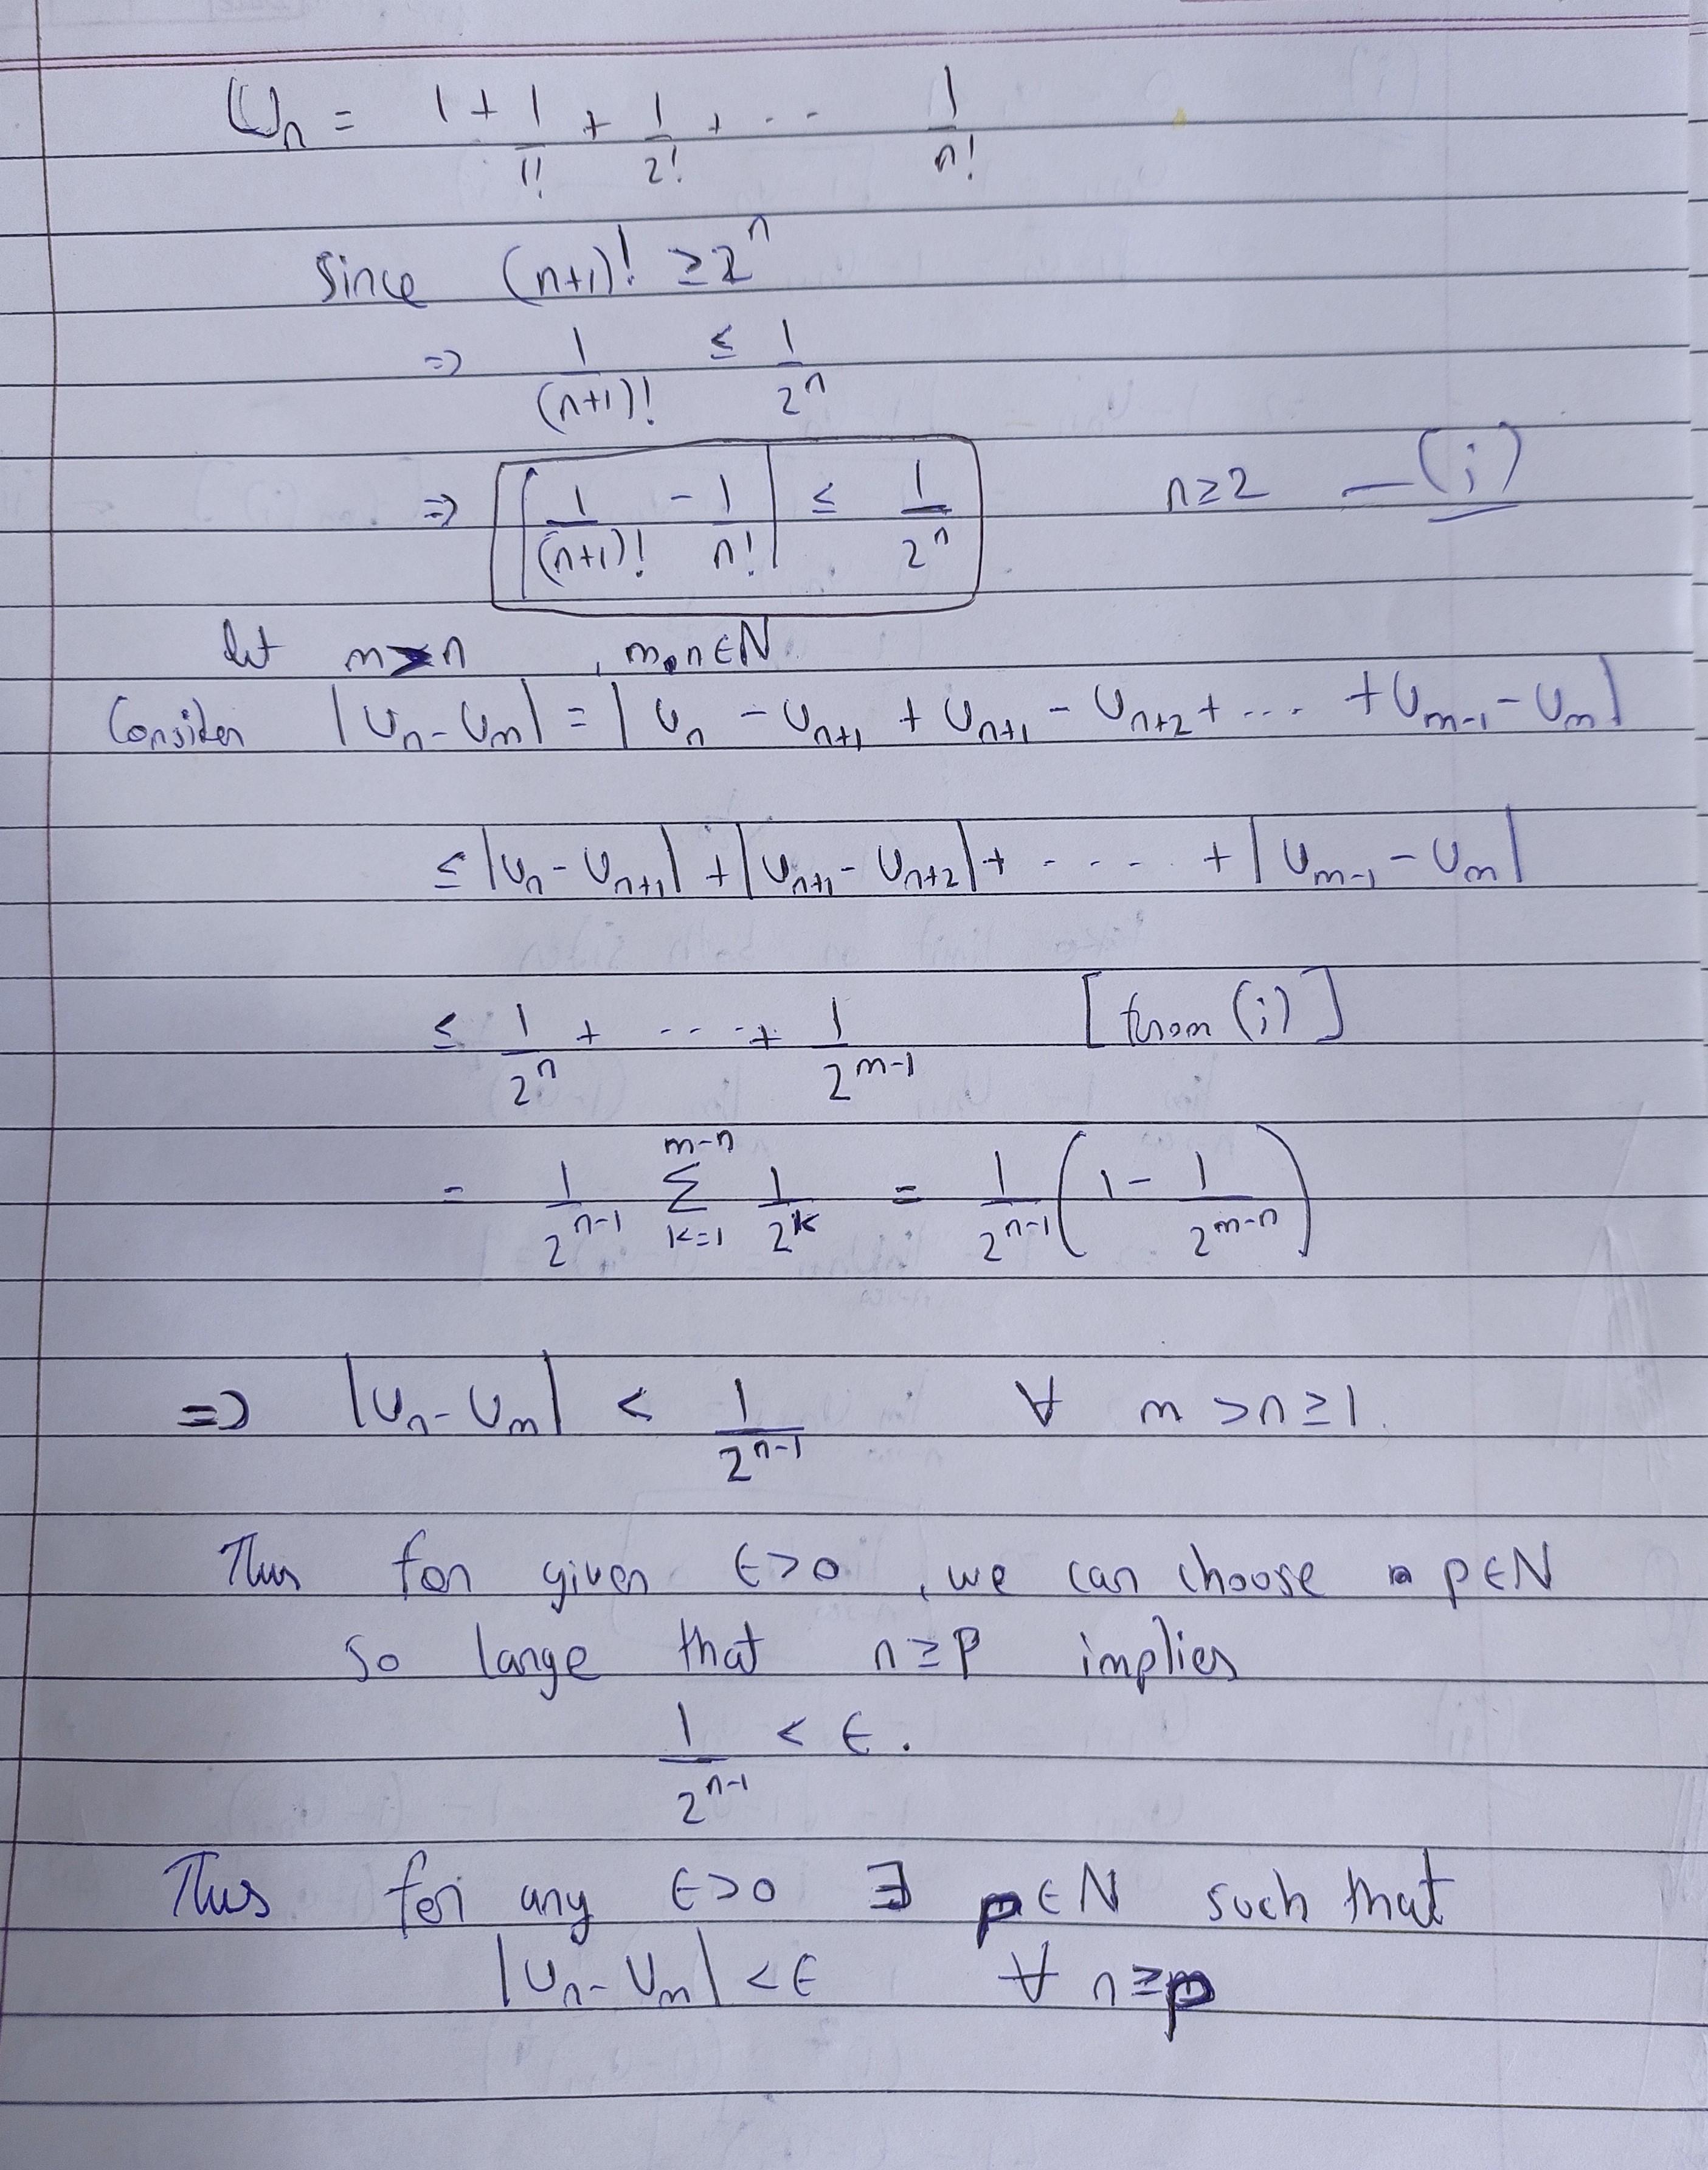 Un = 1 + 1/1! + 1/2! + ... 1/n!
Since (n+1)! ≥ 2^n
=> 1/(n+1)! ≤ 1/2^n
=> |1/(n+1)! - 1/n!| ≤ 1/2^n n≥2 —(i)
let m>n , m,n∈N
Consider |Un-Um| = |Un - Un+1 + Un+1 - Un+2 + ... + Um-1 - Um|
≤ |Un - Un+1| + |Un+1 - Un+2| + .... + |Um-1 - Um|
≤ 1/2^n + ... + 1/2^(m-1) [from (i)]
= 1/2^(n-1) Σ_(k=1)^(m-n) 1/2^k = 1/2^(n-1) (1 - 1/2^(m-n))
=> |Un-Um| < 1/2^(n-1) ∀ m>n≥1.
Thus for given ϵ>0, we can choose a p∈N
so large that n≥p implies
1/2^(n-1) < ϵ.
Thus for any ϵ>0 ∃ p∈N such that
|Un-Um| <ϵ ∀ n≥p